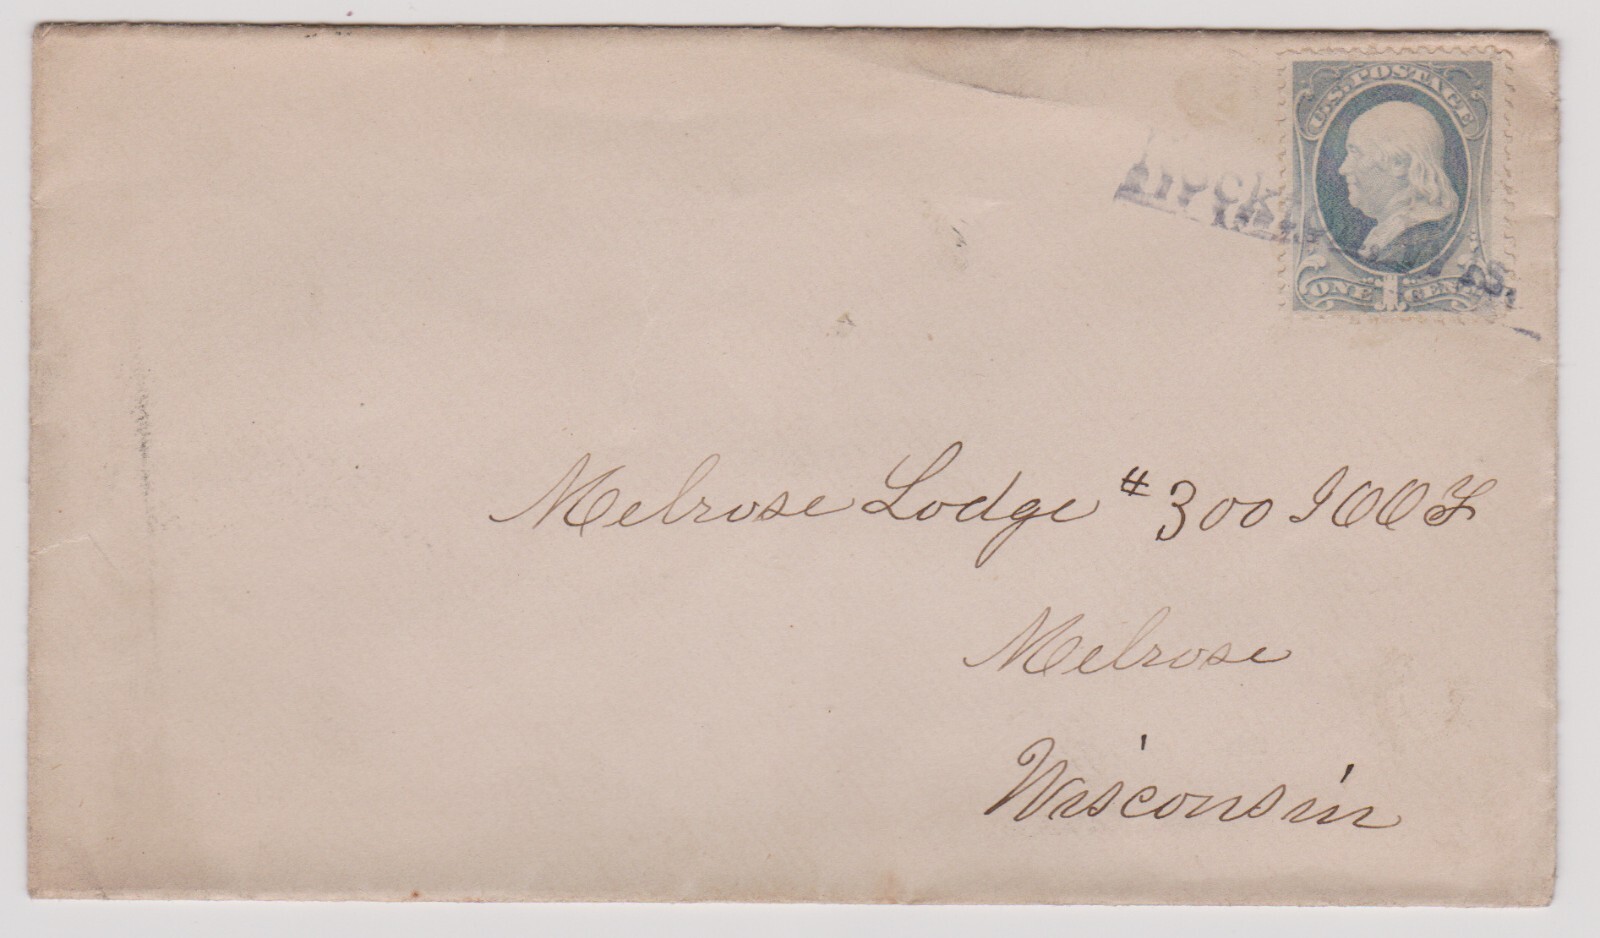 U.S. POSTAGE
ONE 1 CENT
Melrose Lodge # 300 IOOF
Melrose
Wisconsin